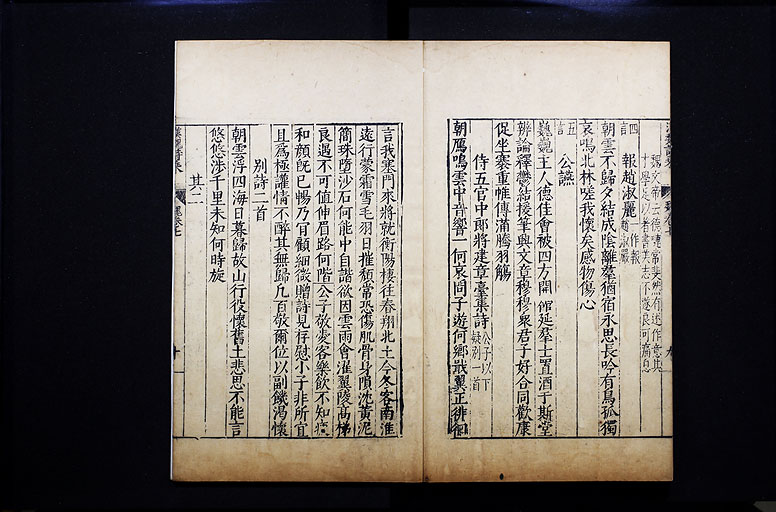 魏文帝云德璉常斐然有述作意其
才學足以著書美志不遂良可痛惜
四言
報趙淑麗
一作報
趙淑嚴
朝雲不歸夕結成陰離羣猶宿永思長吟有鳥孤獨
哀鳴北林嗟我懷矣感物傷心
五言
公讌
巍巍主人德佳會被四方開館延羣士置酒于斯堂
辨論釋鬱結援筆興文章穆穆衆君子好合同歡康
促坐褰重帷傳滿騰羽觴
侍五官中郎將建章臺集詩
公子以下
疑别一首
朝鴈鳴雲中音響一何哀問子遊何鄉戢翼正徘徊
言我塞門來將就衡陽棲往春翔北土今冬客南淮
遠行蒙霜雪毛羽日摧頹常恐傷肌骨身隕沈黄泥
簡珠墮沙石何能中自諧欲因雲雨會濯翼陵高梯
良遇不可值伸眉路何階公子敬愛客樂飲不知疲
和顔既已暢乃肯顧細微贈詩見存慰小子非所宜
且爲極讙情不醉其無歸凡百敬爾位以副饑渴懷
别詩二首
朝雲浮四海日暮歸故山行役懷舊土悲思不能言
悠悠涉千里未知何時旋
其二